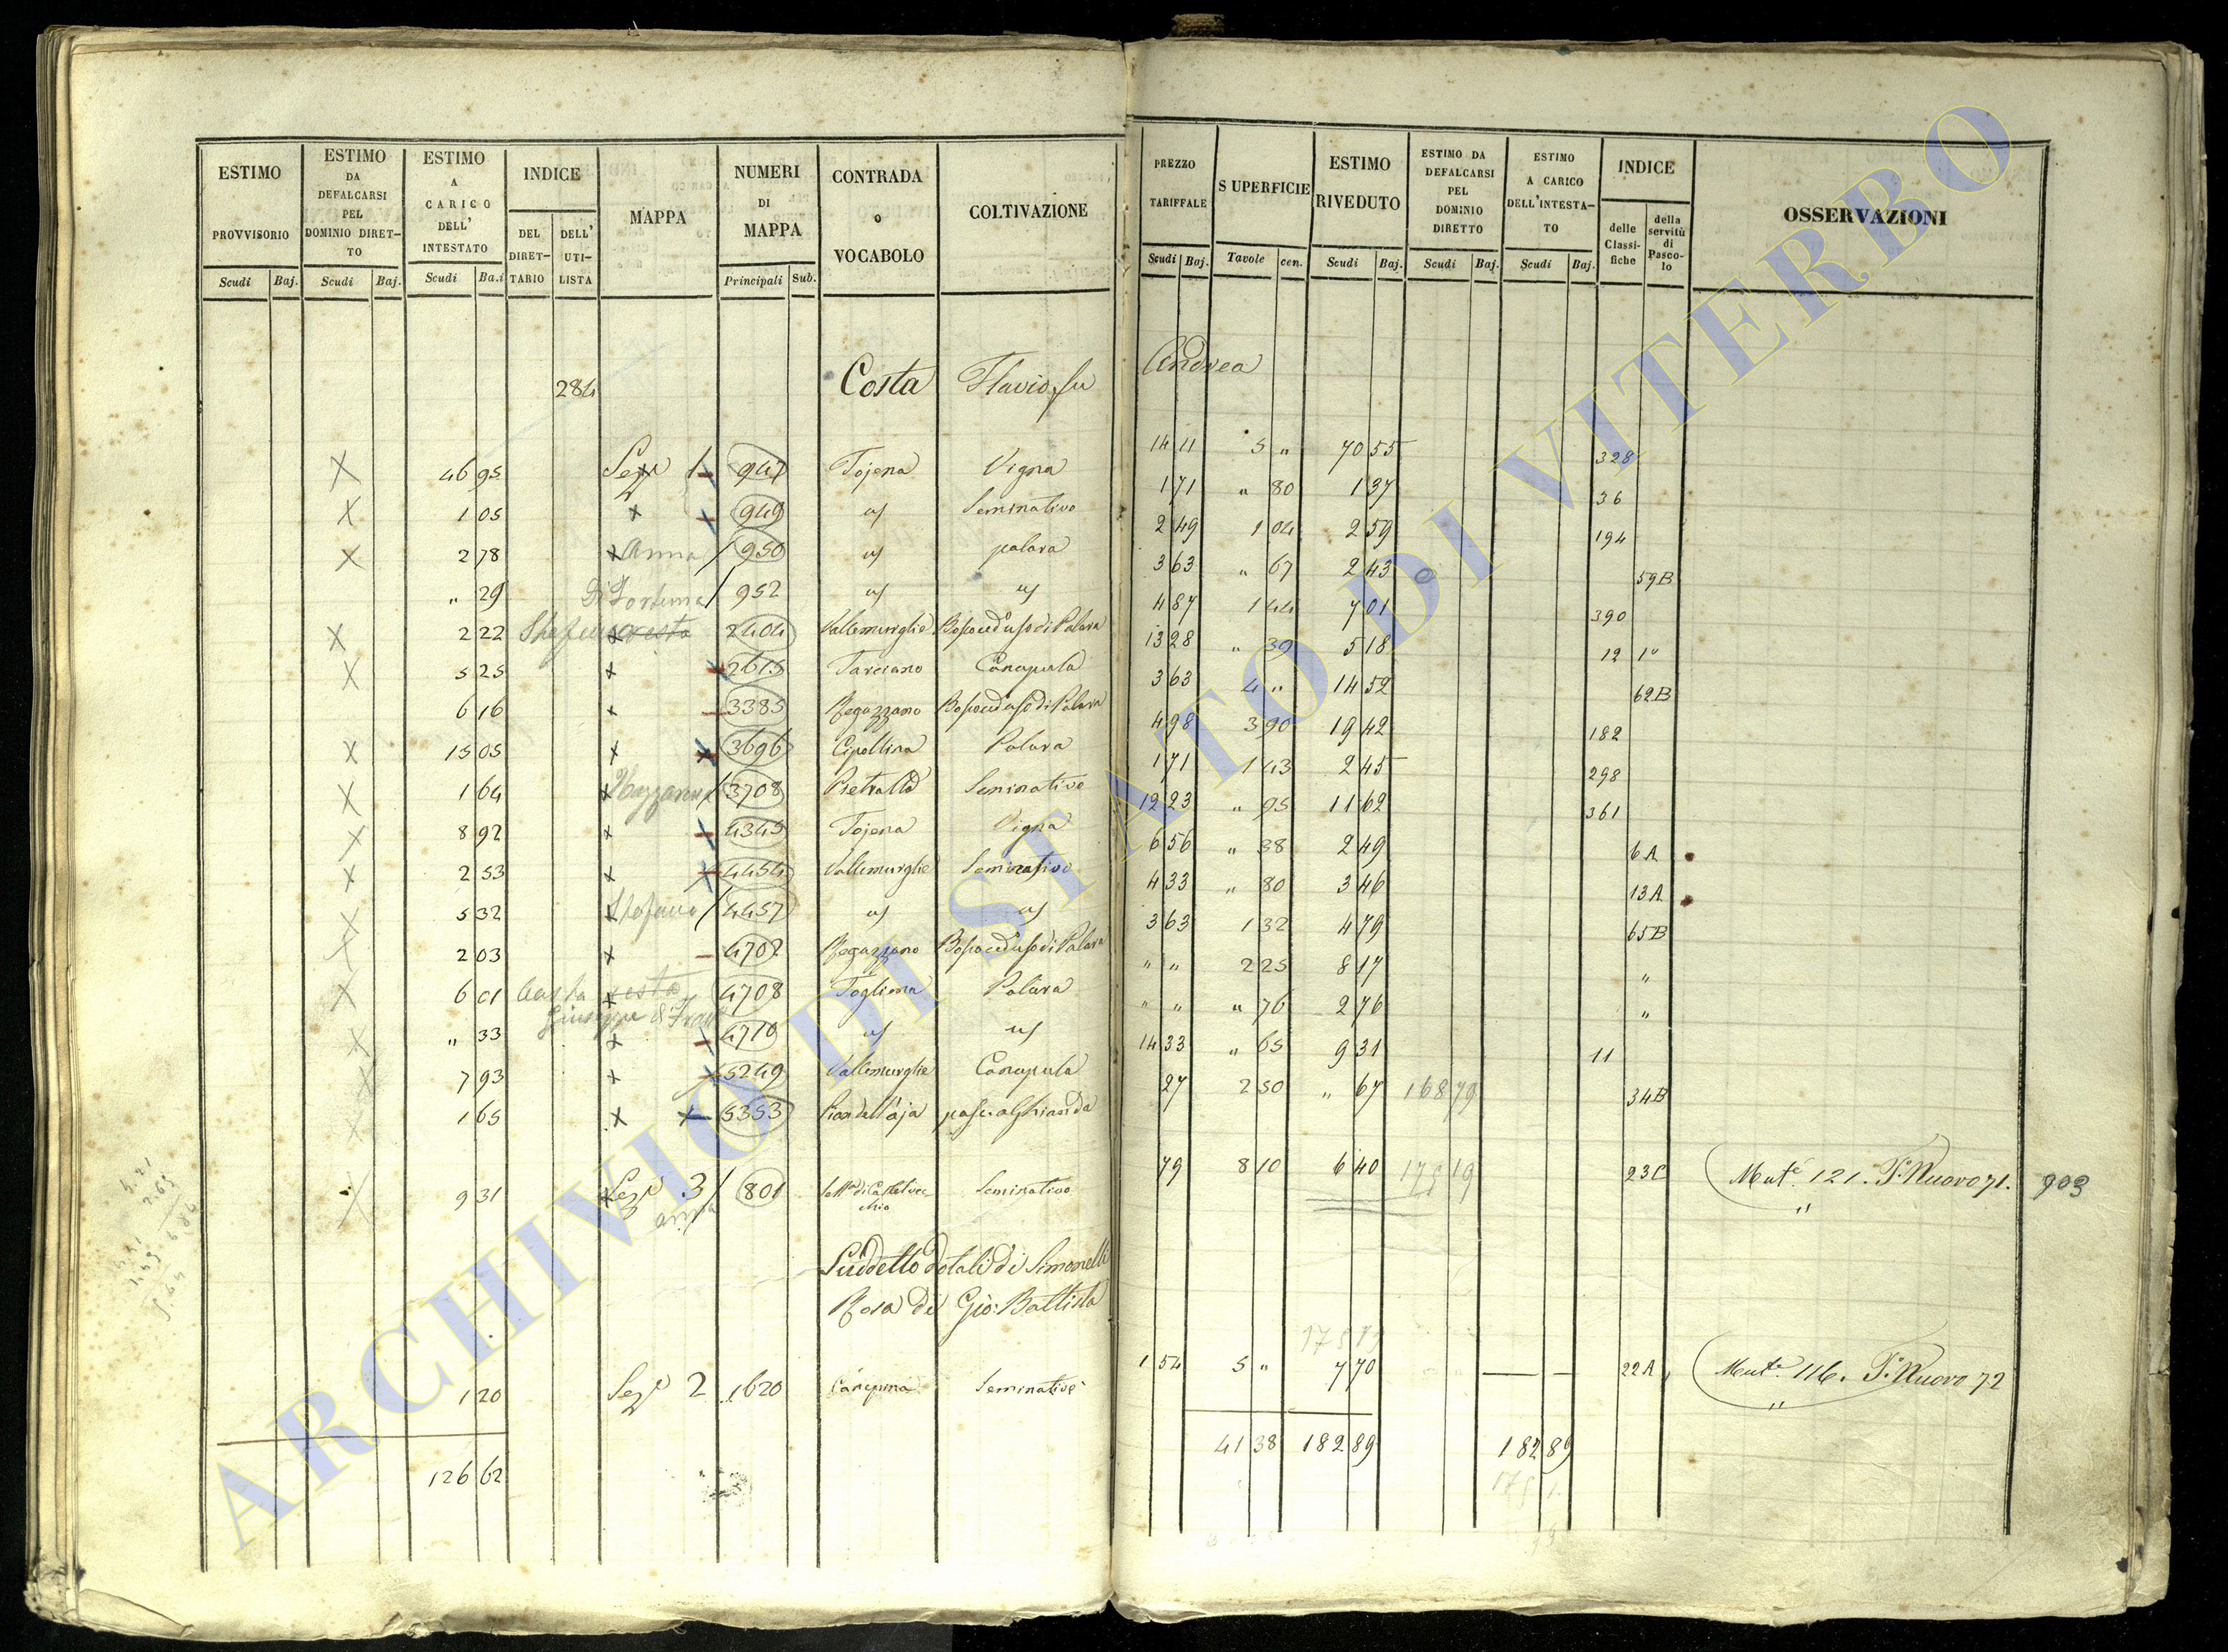 ESTIMO PROVVISORIO Scudi Baj.
ESTIMO DA DEFALCARSI PEL DOMINIO DIRETTO Scudi Baj.
ESTIMO A CARICO DELL' INTESTATO Scudi Ba.i
INDICE DEL DIRETTARIO DELL' UTILISTA
MAPPA
NUMERI DI MAPPA Principali Sub.
CONTRADA o VOCABOLO
COLTIVAZIONE
PREZZO TARIFFALE Scudi Baj.
SUPERFICIE Tavole cen.
ESTIMO RIVEDUTO Scudi Baj.
ESTIMO DA DEFALCARSI PEL DOMINIO DIRETTO Scudi Baj.
ESTIMO A CARICO DELL'INTESTATO Scudi Baj.
INDICE delle Classifiche della servitù di Pascolo
OSSERVAZIONI
284 Costa Flavio fu Andrea
46 95 Sez.e 1 947 Tojena Vigna 14 11 5 " 70 55 328
1 05 949 " Seminativo 1 71 " 80 1 37 36
2 78 Anna 950 " palara 2 49 1 04 2 59 194
" 29 Di Fortuna 952 " " 3 63 " 67 2 43 59B
2 22 2404 Vallemurglie Bosco ced uso di Palara 4 87 1 44 7 01 390
5 25 2615 Tarciano Canapula 13 28 " 39 5 18 12 1"
6 16 3385 Regazzano Bosco ced uso di Palara 3 63 4 " 14 52 62B
15 05 3696 Cipollina Palara 4 98 3 90 19 42 182
1 64 3708 Pietralta Seminativo 1 71 1 43 2 45 298
8 92 4345 Tojena Vigna 12 23 " 95 11 62 361
2 53 4454 Vallemurglie Seminativo 6 56 " 38 2 49 6A
5 32 Stefano 4457 " " 4 33 " 80 3 46 13A
2 03 4702 Regazzano Bosco ced uso di Palara 3 63 1 32 4 79 65B
6 01 Costa 4708 Togliona Palara " " 2 25 8 17 "
Giuseppe
" 33 4710 " " " " " 76 2 76 "
7 93 5249 Vallemurglie Canapula 14 33 " 65 9 31 11
1 65 5353 Pian dell'aja pasc. a Ghianda 27 2 50 " 67 168 79 34B
9 31 Sez.e 3 801 Castelvecchio Seminativo 79 8 10 6 40 175 19 23C Mut.e 121. P. Nuovo 71. 903
Anna
Suddetto dotali di Simonelli
Rosa di Gio: Battista
1 20 Sez.e 2 1620 Canepina Seminativo 1 54 5 " 7 70 22A Mut.e 116. P. Nuovo 72
126 62 41 38 182 89 182 89
ARCHIVIO DI STATO DI VITERBO